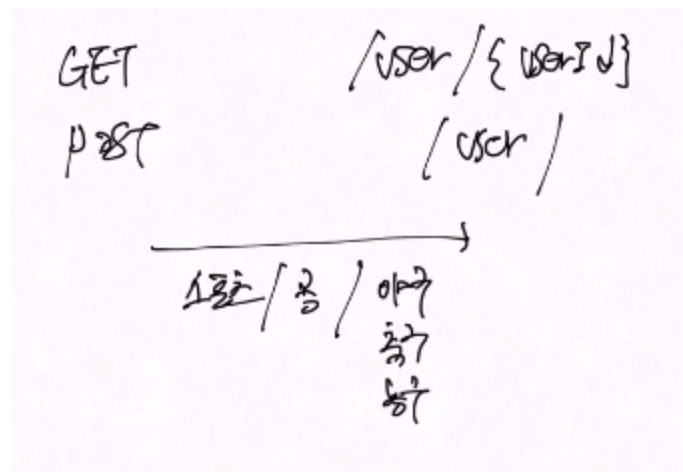 GET /user/{userId}
POST /user/
스포츠/공/야구
축구
농구